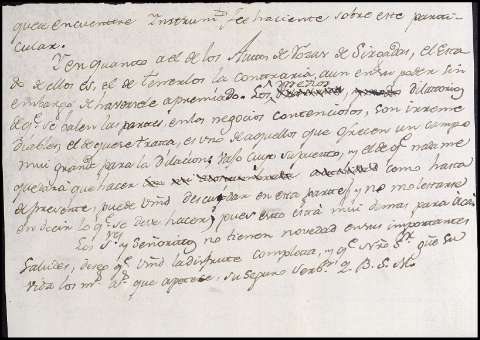 que encuentre Instrumto. fee haciente sobre este parti-
cular.
Y en quanto a el de los Autos de de Sirgados, el Esta-
do de ellos es, el de tenerlos la contraria, aun en su poder sin
embargo de haversele apremiado. Los medios dilatorios
de qe. se valen las partes en los negocios contenciosos, son irreme-
diables, el de que se trata, es uno de aquellos que ofrecen un campo
mui grande para la dilacion bajo cuyo supuesto, y el de qe. nada me
quedará que hacer como hasta
de presente, puede Vmd descuidar en esta parte, y no molestarse
en decir lo qe. se deve hacer, pues esto está mui demas para
Los Sres. y Señoritas no tienen novedad en sus importantes
Saludes, deseo qe. Vmd la disfrute completa, y qe. Nro. Sr. gue. su
vida los ms. as. que apetece, su seguro servor. Q. B. S. M.